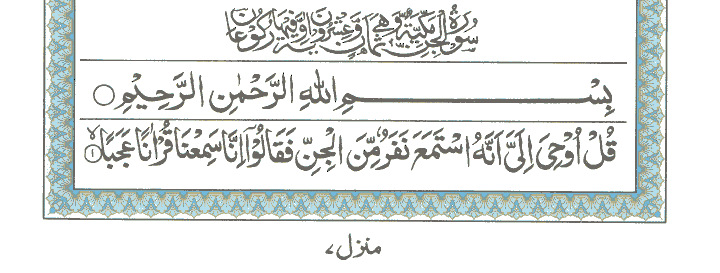 سُوْرَةُ الْجِنِّ مَكِّيَّةٌ وَّهِيَ ثَمَانٌ وَّعِشْرُوْنَ اٰيَةً وَّفِيْهَا رُكُوْعَانِ
بِسْمِ اللّٰهِ الرَّحْمٰنِ الرَّحِيْمِ ○
قُلْ اُوْحِيَ اِلَيَّ اَنَّهُ اسْتَمَعَ نَفَرٌ مِّنَ الْجِنِّ فَقَالُوْۤا اِنَّا سَمِعْنَا قُرْاٰنًا عَجَبًا ۙ١
منزل ٧